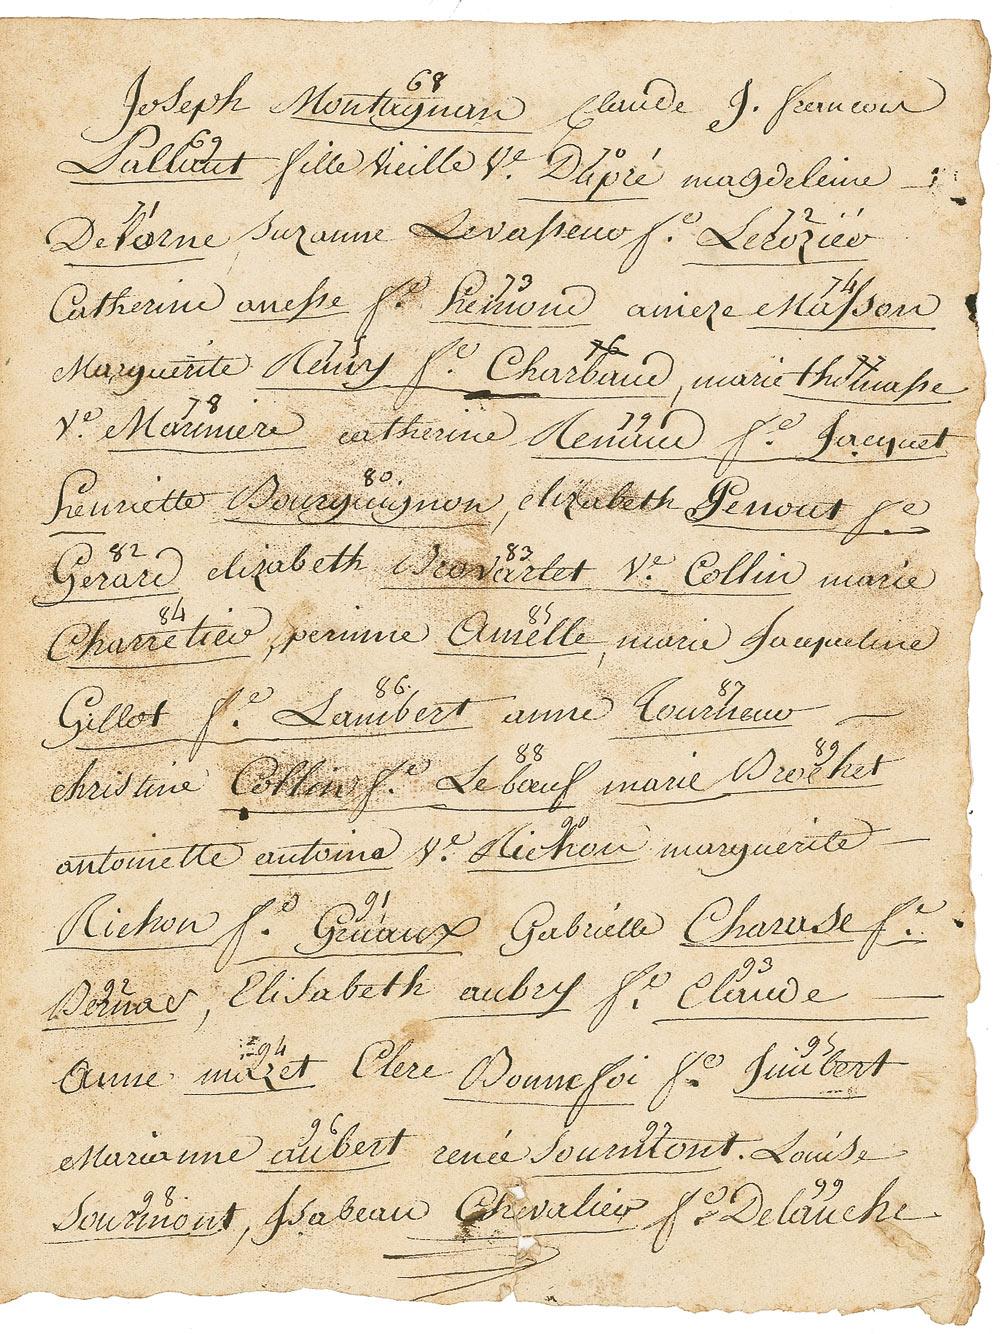 68
Joseph Montagnan Claude J. francois
69 70
Lallient fille vieille Ve. Dupré magdeleine
71 72
Delorne Suzanne Levasseur fe. Lerozier
73 74
Catherine anesse fe. hémond anieze Masson
75 76 77
Marguérite Remy fe. Charbaud, marie thomasse
78 79
Ve. Mariniere catherine Renaud fe. Jacquet
80.
henriette Bourguignon, elizabeth Genout fe.
82 83
Gerard elizabeth Brovartet Ve. Collin marie
84 85
Charretier, perinne Amelle, marie Jacqueline
86 87
Gillot fe. Lambert anne Tourneur
88 89
christine Collin fe. Le bœuf marie Brochet
90
antoinette antoine Ve. Richon marguérite
91
Richon fe. Gruaux Gabrielle Charase fe.
92 93
Bernas, Elisabeth aubry fe. Claude
94 95
Anne mizet Clere Bonnefoi fe. Jimbert
96 97
Marianne aubert renée Sourmont. Louise
98 99
Sourmont, Isabeau Chevalier fe. Delauche